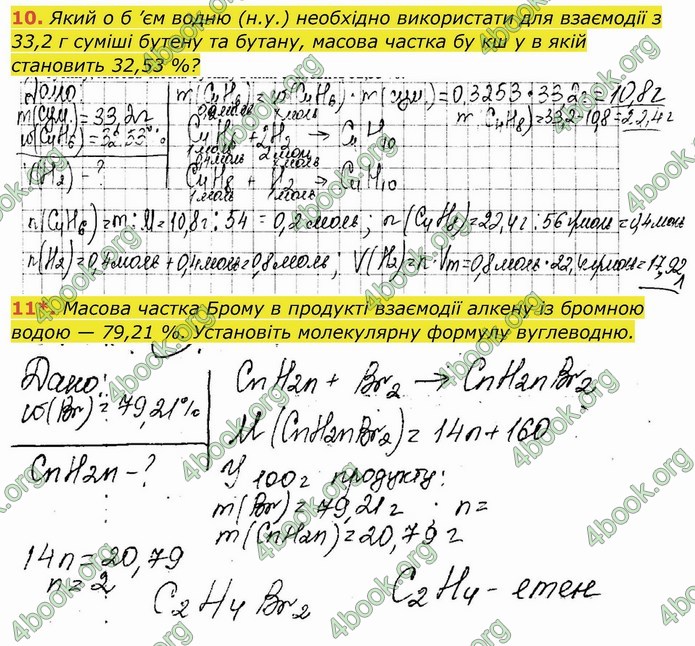 10. Який о б ’єм водню (н.у.) необхідно використати для взаємодії з
33,2 г суміші бутену та бутану, масова частка бу кш у в якій
становить 32,53 %?
Дано:
m(сум.)=33,2г
w(C4H6)=32,53%
V(H2) - ?
m(C4H6)=w(C4H6)·m(сум.)=0,3253·33,2г=10,8г
m(C4H8)=33,2-10,8=22,4г
0,2моль
C4H6 + 2H2 → C4H10
1моль 2моль
0,4моль
C4H8 + H2 → C4H10
1моль 1моль
n(C4H6)=m:M=10,8г:54=0,2моль; n(C4H8)=22,4г:56г/моль=0,4моль
n(H2)=0,4моль+0,4моль=0,8моль; V(H2)=n·Vm=0,8моль·22,4л/моль=17,92л
11*. Масова частка Брому в продукті взаємодії алкену із бромною
водою — 79,21 %. Установіть молекулярну формулу вуглеводню.
Дано:
w(Br)=79,21%
CnH2n-?
CnH2n + Br2 → CnH2nBr2
M(CnH2nBr2)=14n+160
У 100г продукту:
m(Br)=79,21г n=
m(CnH2n)=20,79г
14n=20,79
n=2
C2H4Br2
C2H4-етен
4book.org